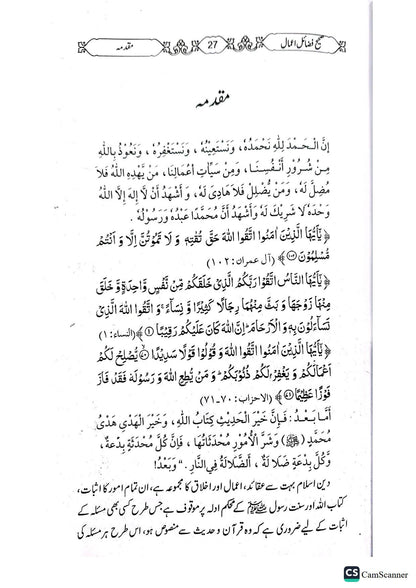 صحیح فضائل اعمال 27 مقدمہ
مقدمہ
إِنَّ الْحَمْدَ لِلّٰهِ نَحْمَدُهُ، وَنَسْتَعِيْنُهُ، وَنَسْتَغْفِرُهُ، وَنَعُوْذُ بِاللّٰهِ
مِنْ شُرُوْرِ أَنْفُسِنَا، وَمِنْ سَيِّاٰتِ أَعْمَالِنَا، مَنْ يَهْدِهِ اللّٰهُ فَلَا
مُضِلَّ لَهُ، وَمَنْ يُضْلِلْ فَلَا هَادِيَ لَهُ، وَأَشْهَدُ أَنْ لَّا إِلٰهَ إِلَّا اللّٰهُ
وَحْدَهُ لَا شَرِيْكَ لَهُ وَأَشْهَدُ أَنَّ مُحَمَّدًا عَبْدُهُ وَرَسُوْلُهُ.
﴿يٰۤاَيُّهَا الَّذِيْنَ اٰمَنُوا اتَّقُوا اللّٰهَ حَقَّ تُقٰتِهٖ وَ لَا تَمُوْتُنَّ اِلَّا وَ اَنْتُمْ
مُّسْلِمُوْنَ﴾ (آل عمران: ١٠٢)
﴿يٰۤاَيُّهَا النَّاسُ اتَّقُوْا رَبَّكُمُ الَّذِيْ خَلَقَكُمْ مِّنْ نَّفْسٍ وَّاحِدَةٍ وَّ خَلَقَ
مِنْهَا زَوْجَهَا وَ بَثَّ مِنْهُمَا رِجَالًا كَثِيْرًا وَّ نِسَآءً ۚ وَ اتَّقُوا اللّٰهَ الَّذِيْ
تَسَآءَلُوْنَ بِهٖ وَ الْاَرْحَامَ ؕ اِنَّ اللّٰهَ كَانَ عَلَيْكُمْ رَقِيْبًا ۝۱﴾ (النساء: ١)
﴿يٰۤاَيُّهَا الَّذِيْنَ اٰمَنُوا اتَّقُوا اللّٰهَ وَ قُوْلُوْا قَوْلًا سَدِيْدًا ۝ يُّصْلِحْ لَكُمْ
اَعْمَالَكُمْ وَ يَغْفِرْ لَكُمْ ذُنُوْبَكُمْ ؕ وَ مَنْ يُّطِعِ اللّٰهَ وَ رَسُوْلَهٗ فَقَدْ فَازَ
فَوْزًا عَظِيْمًا ۝﴾ (الاحزاب: ٧٠-٧١)
أَمَّا بَعْدُ: فَإِنَّ خَيْرَ الْحَدِيْثِ كِتَابُ اللّٰهِ، وَخَيْرَ الْهَدْيِ هَدْيُ
مُحَمَّدٍ (ﷺ) وَشَرَّ الْأُمُوْرِ مُحْدَثَاتُهَا، فَإِنَّ كُلَّ مُحْدَثَةٍ بِدْعَةٌ،
وَّكُلَّ بِدْعَةٍ ضَلَالَةٌ، الضَّلَالَةُ فِي النَّارِ. "وَبَعْدُ!
دین اسلام بہت سے عقائد، اعمال اور اخلاق کا مجموعہ ہے، ان تمام امور کا اثبات،
کتاب اللہ اور سنت رسول ﷺ کے محکم اولہ پر موقوف ہے جس طرح کسی بھی مسئلہ کے
اثبات کے لیے ضروری ہے کہ وہ قرآن و حدیث سے منصوص ہو، اس طرح ہر مسئلہ کی
CS CamScanner